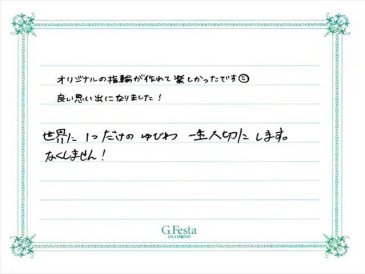 オリジナルの指輪が作れて楽しかったです☺
良い思い出になりました！
世界に1つだけのゆびわ 一生大切にします。
なくしません！
G.Festa
DIAMOND